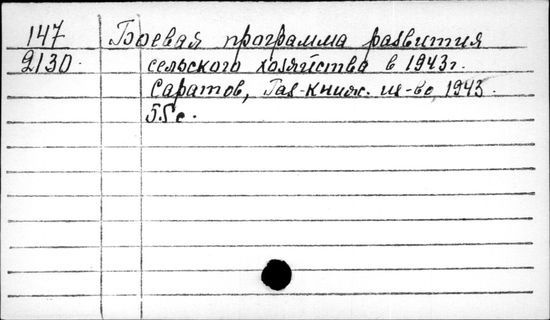 147 Боевая программа развития
2130. сельского хозяйства в 1943г.
Саратов, Газ-книж. из-во, 1943.
55с.